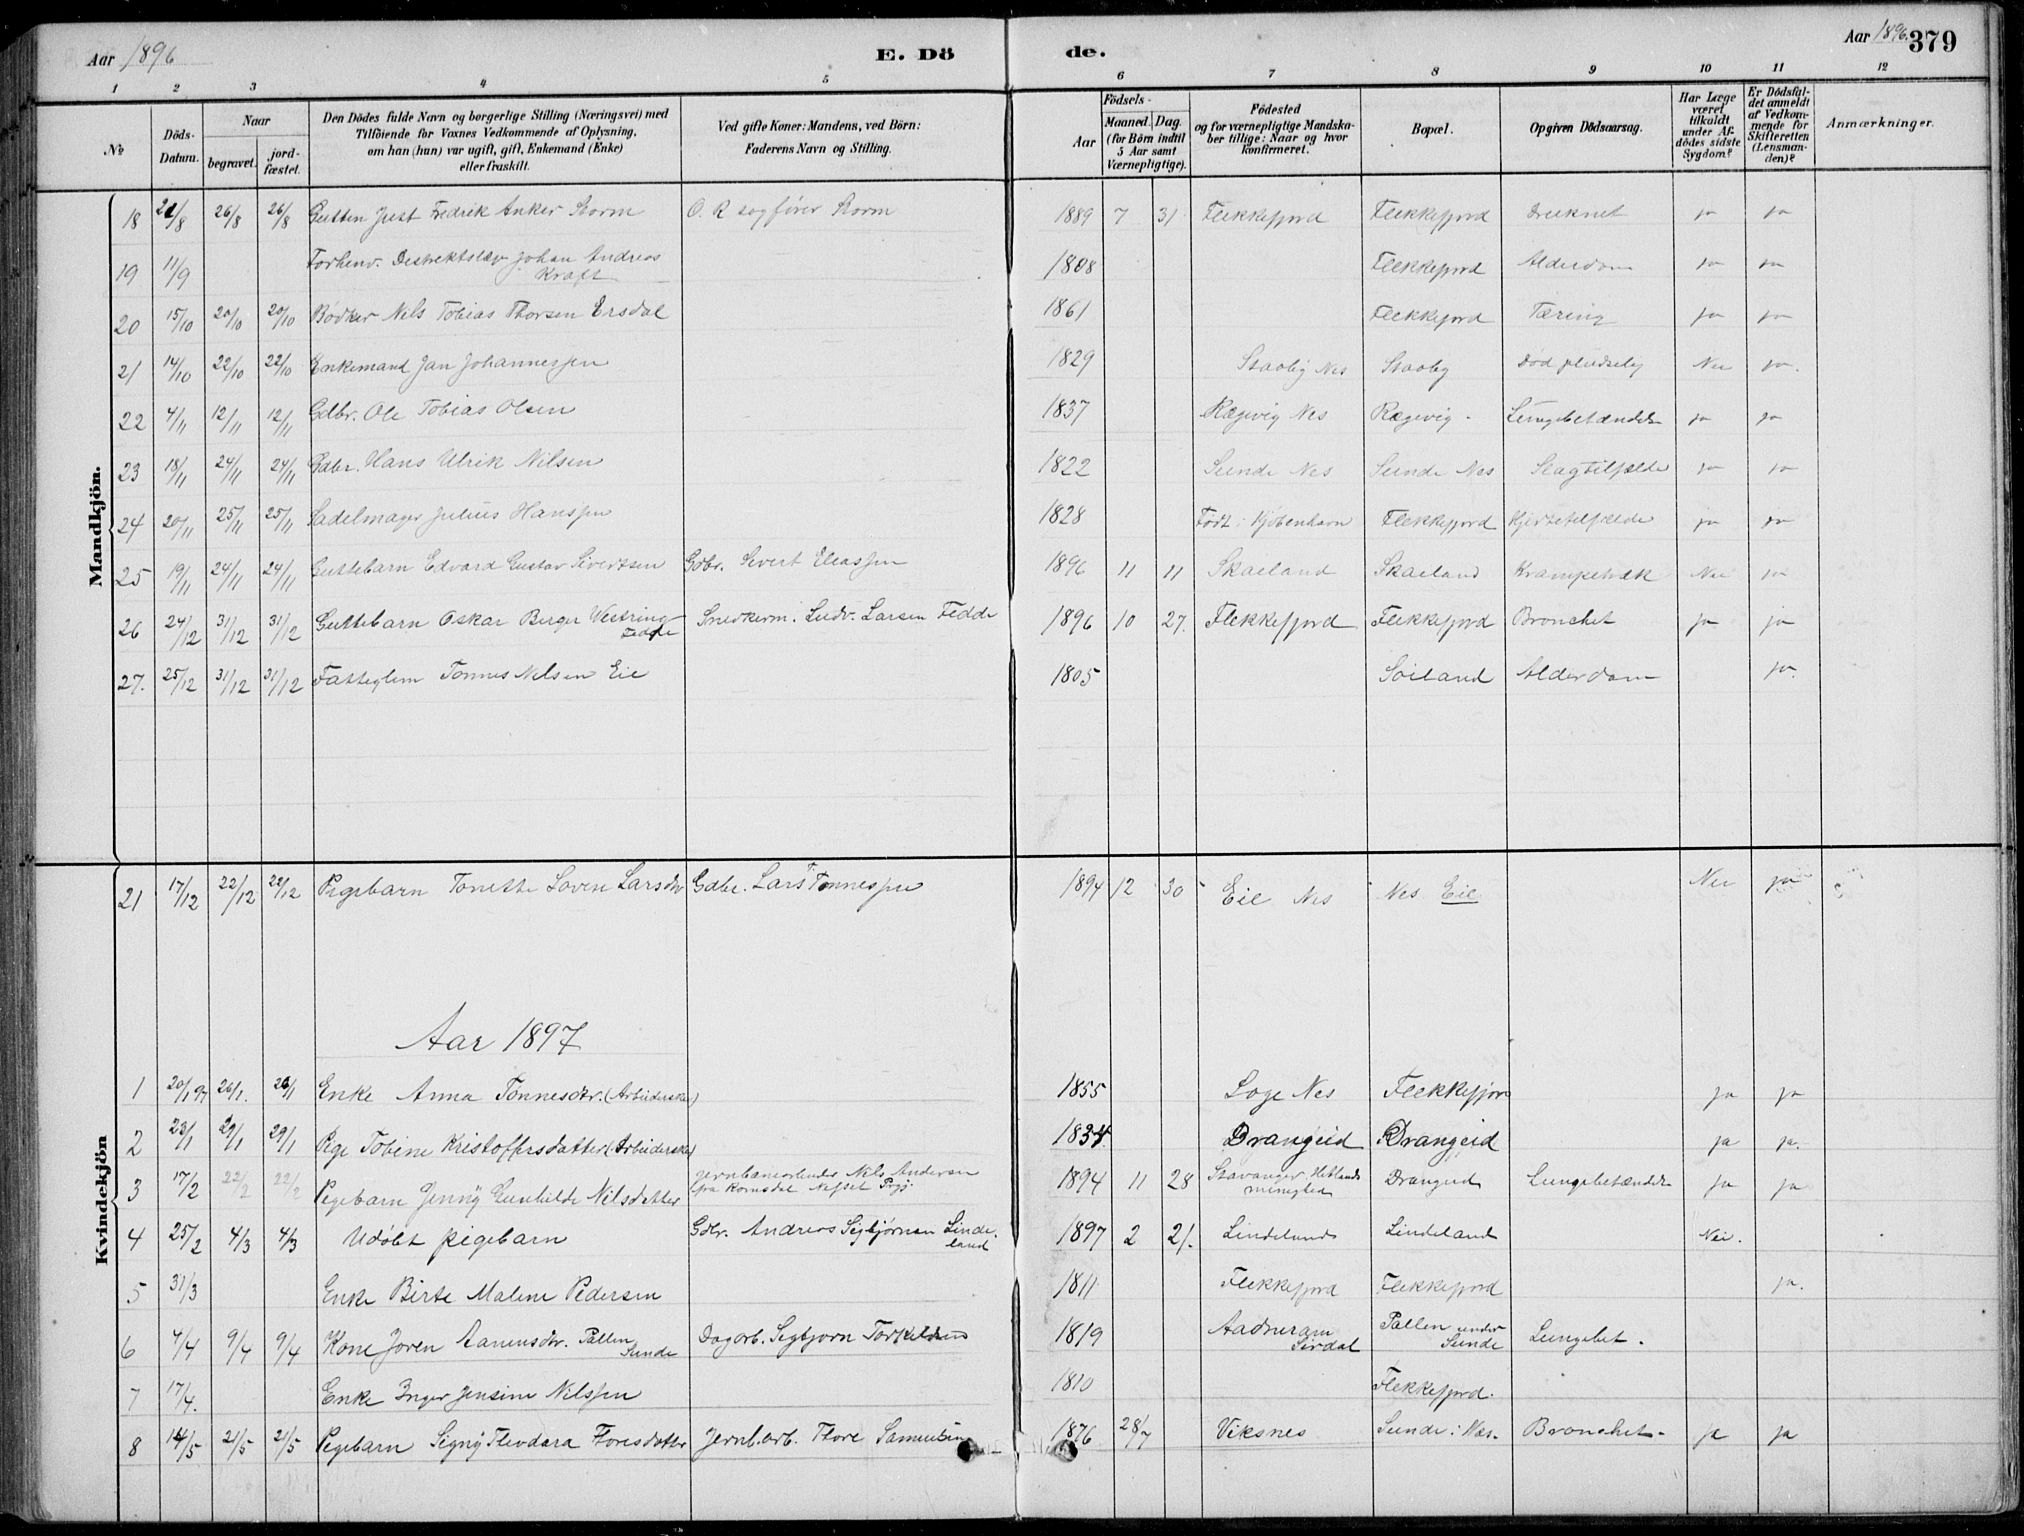 Aar 1896
E. Dö de.
Aar 1896.
379
1 2 3 4 5 6 7 8 9 10 11 12
No
Döds-Datum.
Naar
begravet.
jord-fæstet.
Den Dödes fulde Navn og borgerlige Stilling (Næringsvei) med
Tilföiende for Voxnes Vedkommende af Oplysning,
om han (hun) var ugift, gift, Enkemand (Enke)
eller fraskilt.
Ved gifte Koner: Mandens, ved Börn:
Faderens Navn og Stilling.
Födsels-
Aar
Maaned. Dag.
(for Börn indtil
5 Aar samt
Værnepligtige).
Födested
og for værnepligtige Mandska-
ber tillige: Naar og hvor
konfirmeret.
Bopæl.
Opgiven Dödsaarsag.
Har Læge
været
tilkaldt
under Af-
dödes sidste
Sygdom?
Er Dödsfal-
det anmeldt
af Vedkom-
mende for
Skifteretten
(Lensman-
den)?
Anmærkninger.
Mandkjön.
18 21/8 26/8 26/8 Gutten Just Fredrik Anker Storm O. R sagfører Storm 1889 7 31 Flekkefjord Flekkefjord Druknet ja ja
19 11/9 Forhenv. Johan Andreas
Kraft 1808 Flekkefjord Alderdom ja ja
20 15/10 20/10 20/10 Bødker Nils Tobias Thorsen Ersdal 1861 Flekkefjord Tæring ja ja
21 14/10 22/10 22/10 Enkemand Jan Johannessen 1829 Staaby Nes Staaby Død pludselig Nei ja.
22 4/11 12/11 12/11 Gdbr. Ole Tobias Olsen 1837 Rægevig Nes Rægevig. Lungebetændelse ja ja
23 18/11 24/11 24/11 Gdbr. Hans Ulrik Nilsen 1822 Sunde Nes Sunde Nes Slagtilfælde ja ja
24 20/11 25/11 25/11 Sadelmager Julius Hanssen 1828 Født i Kjøbenhavn Flekkefjord Hjertetilfælde ja ja
25 19/11 24/11 24/11 Guttebarn Edvard Gustav Sivertsen Gdbr. Sivert Eliassen 1896 11 11 Skaeland Skaeland Krampetræk Nei ja
26 24/12 31/12 31/12 Guttebarn Oskar Berger Westring
Fedde Snedkerm. Ludv. Larsen Fedde 1896 10 27. Flekkefjord Flekkefjord Bronchit ja ja
27. 25/12 31/12 31/12 Fattiglem Tønnes Nilsen Eie 1805 Soiland Alderdom ja.
21 17/12 22/12 22/12 Pigebarn Tonette Loven Larsdtr Gdbr. Lars Tønnessen 1894 12 30 Eie Nes Nes Eie Nei ja
Aar 1897
Kvindekjön
1 20/1 97 26/1. 26/1 Enke Anna Tønnesdtr. (Arbeiderske) 1855 Loge Nes Flekkefjord ja ja
2 23/1 29/1 29/1 Pige Tobine Kristoffersdatter (Arbeiderske) 1834 Drangeid Drangeid ja ja.
3 17/2 22/2 22/2 Pigebarn Jenny Gunhilde Nilsdatter Jernbanearbeider Nils Andersen
fra Romsdal 1894 11 28 Stavanger Hetlands
menighed Drangeid Lungebetændelse ja ja
4 25/2 4/3 4/3 Udøbt pigebarn Gdbr. Andreas Sigbjørnsen Linde-
land 1897 2 21. Lindeland Lindeland Nei.
5 31/3 Enke Birte Malene Pedersen 1811 Flekkefjord Flekkefjord ja.
6 4/4 9/4 9/4 Kone Joren Aanensdtr. Pallen
Sunde Dagarb. Sigbjorn Torkeldsen 1819 Aadneram
Sirdal Pallen under
Sunde Lungebet.
7 17/4. Enke Inger Jensine Nilssen 1810 Flekkefjord.
8 14/5 21/5 21/5 Pigebarn Signy Theodara Thoresdatter Jernb.arb. Thore Samuelsen 1876 28/7 Viksnes Sunde i Nes. Bronchit ja ja